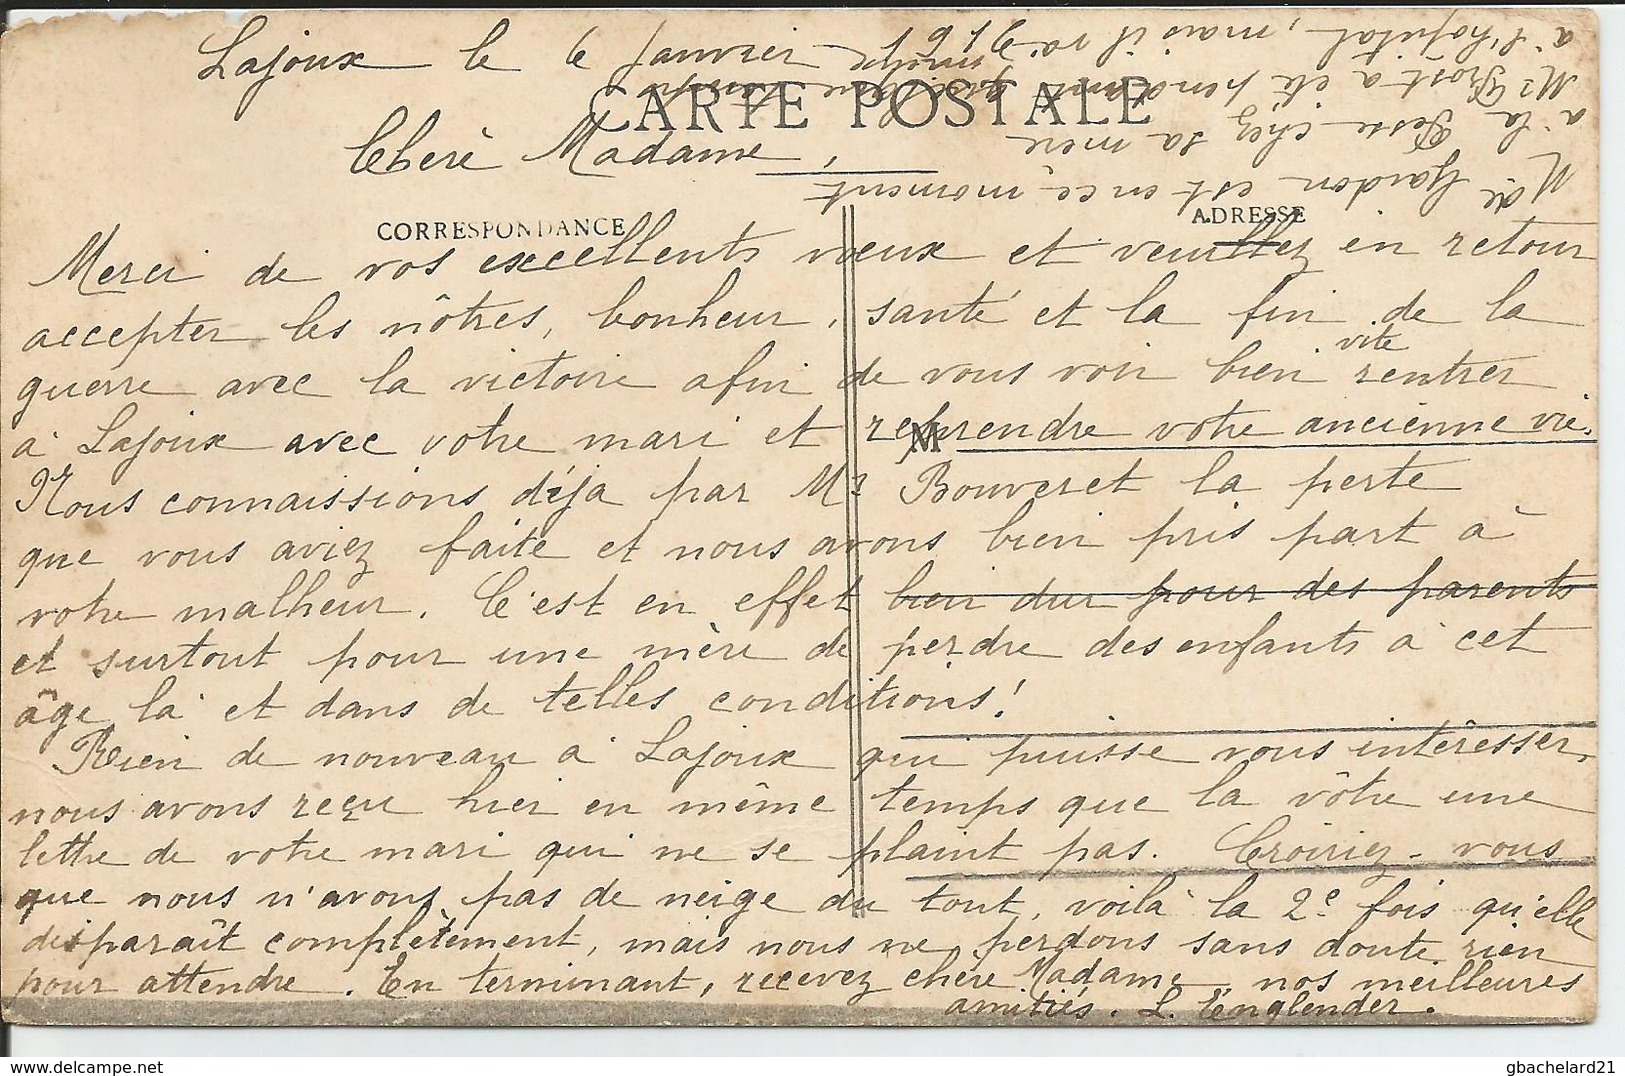 Lajoux le 6 Janvier 1916
CARTE POSTALE
Chère Madame,
CORRESPONDANCE
ADRESSE
Merci de vos excellents vœux et veuillez en retour
accepter les nôtres, bonheur, santé et la fin de la
guerre avec la victoire afin de vous voir bien vite rentrer
à Lajoux avec votre mari et reprendre votre ancienne vie.
M
Nous connaissions déja par Mr Bouveret la perte
que vous aviez faite et nous avons bien pris part à
votre malheur. C'est en effet bien dur pour des parents
et surtout pour une mère de perdre des enfants à cet
âge là et dans de telles conditions!
Rien de nouveau à Lajoux qui puisse vous intéresser,
nous avons reçu hier en même temps que la vôtre une
lettre de votre mari qui ne se plaint pas. Croiriez-vous
que nous n'avons pas de neige du tout, voilà la 2e fois qu'elle
disparaît complètement, mais nous ne perdons sans doute rien
pour attendre. En terminant, recevez chère Madame nos meilleures
amitiés. L. Englender.
Mde Gardon est en ce moment
à la Pesse chez sa mère
Mr Prost a été pendant quelque temps
à l'hôpital, mais il va
mieux
gbachelard21